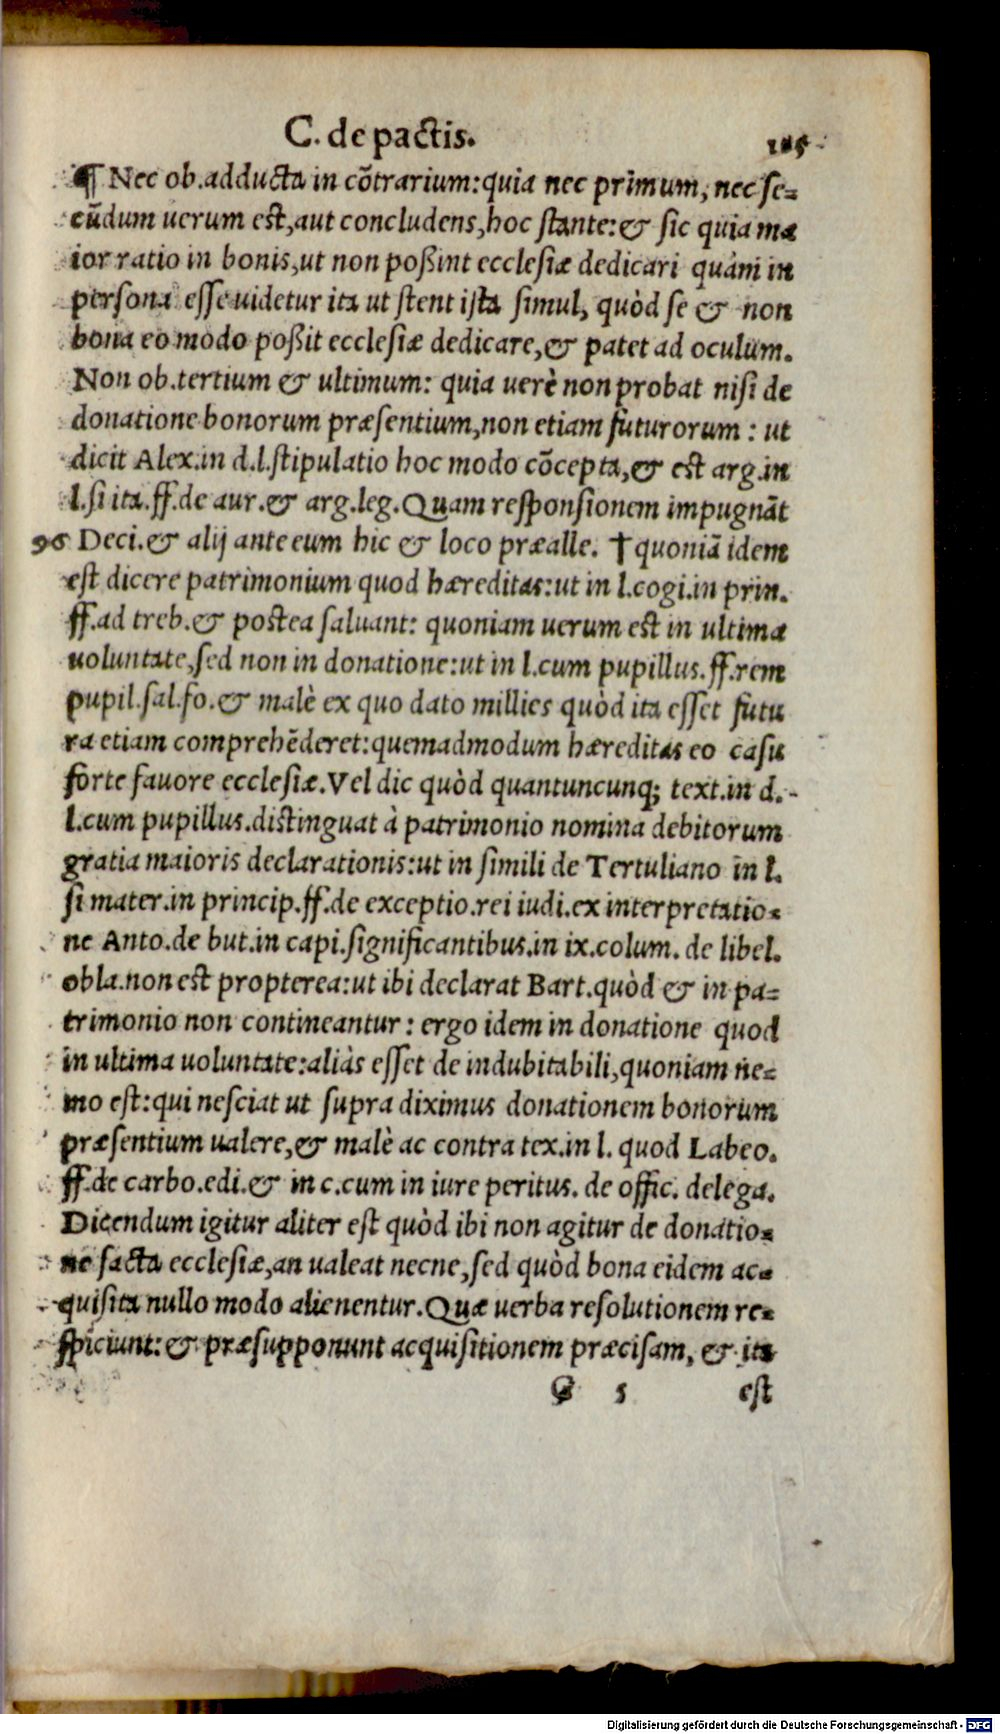 C. de pactis. 105
¶ Nec ob. adducta in cōtrarium: quia nec primum, nec se-
cūdum uerum est, aut concludens, hoc stante: & sic quia ma
ior ratio in bonis, ut non poßint ecclesiæ dedicari quàm in
persona esse uidetur ita ut stent ista simul, quòd se & non
bona eo modo poßit ecclesiæ dedicare, & patet ad oculum.
Non ob. tertium & ultimum: quia uerè non probat nisi de
donatione bonorum præsentium, non etiam futurorum : ut
dicit Alex. in d. l. stipulatio hoc modo cōcepta, & est arg. in
l. si ita. ff. de aur. & arg. leg. Quam responsionem impugnāt
96 Deci. & alij ante eum hic & loco præalle. † quoniā idem
est dicere patrimonium quod hæreditas: ut in l. cogi. in prin.
ff. ad treb. & postea saluant: quoniam uerum est in ultima
uoluntate, sed non in donatione: ut in l. cum pupillus. ff. rem
pupil. sal. fo. & malè ex quo dato millies quòd ita esset futu
ra etiam comprehēderet: quemadmodum hæreditas eo casu
forte fauore ecclesiæ. Vel dic quòd quantuncunq; text. in d.
l. cum pupillus. distinguat à patrimonio nomina debitorum
gratia maioris declarationis: ut in simili de Tertuliano in l.
si mater. in princip. ff. de exceptio. rei iudi. ex interpretatio-
ne Anto. de but. in capi. significantibus. in ix. colum. de libel.
obla. non est propterea: ut ibi declarat Bart. quòd & in pa-
trimonio non contineantur : ergo idem in donatione quod
in ultima uoluntate: aliàs esset de indubitabili, quoniam ne-
mo est: qui nesciat ut supra diximus donationem bonorum
præsentium ualere, & malè ac contra tex. in l. quod Labeo.
ff. de carbo. edi. & in c. cum in iure peritus. de offic. delega.
Dicendum igitur aliter est quòd ibi non agitur de donatio-
ne facta ecclesiæ, an ualeat necne, sed quòd bona eidem ac-
quisita nullo modo alienentur. Quæ uerba resolutionem re-
spiciunt: & præsupponunt acquisitionem præcisam, & ita
G 5 est
Digitalisierung gefördert durch die Deutsche Forschungsgemeinschaft - DFG